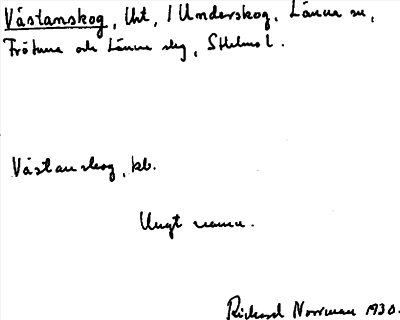 Västanskog, Uht, i Underskog, Länna sn,
Frötuna och Länna skg, Sthlms l.
Västanskog, kb.
Ungt namn.
Richard Norrman 1930.